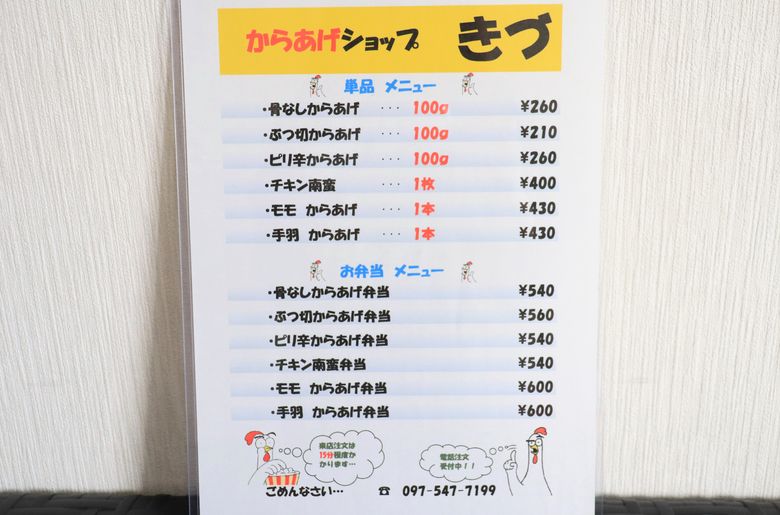 からあげショップ きづ
単品 メニュー
・骨なしからあげ ・・・ 100g ¥260
・ぶつ切からあげ ・・・ 100g ¥210
・ピリ辛からあげ ・・・ 100g ¥260
・チキン南蛮 ・・・ 1枚 ¥400
・モモ からあげ ・・・ 1本 ¥430
・手羽 からあげ ・・・ 1本 ¥430
お弁当 メニュー
・骨なしからあげ弁当 ¥540
・ぶつ切からあげ弁当 ¥560
・ピリ辛からあげ弁当 ¥540
・チキン南蛮弁当 ¥540
・モモ からあげ弁当 ¥600
・手羽 からあげ弁当 ¥600
来店注文は
15分程度か
かります…
電話注文
受付中！！
ごめんなさい… ☎ 097-547-7199